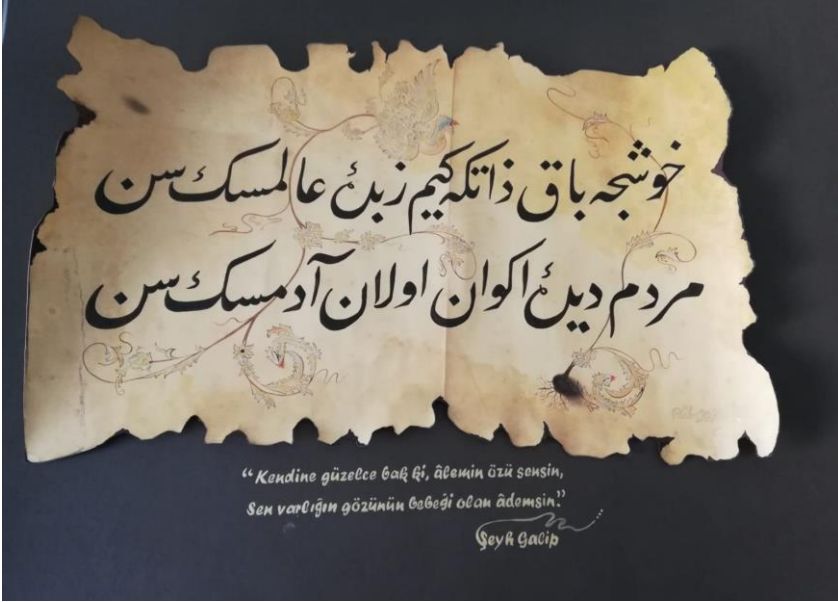 خوشجه باق ذاتكه كيم زبدۀ عالمسك سن
مردم ديدۀ اكوان اولان آدمسك سن
“Kendine güzelce bak ki, âlemin özü sensin,
Sen varlığın gözünün bebeği olan âdemsin.”
Şeyh Galip